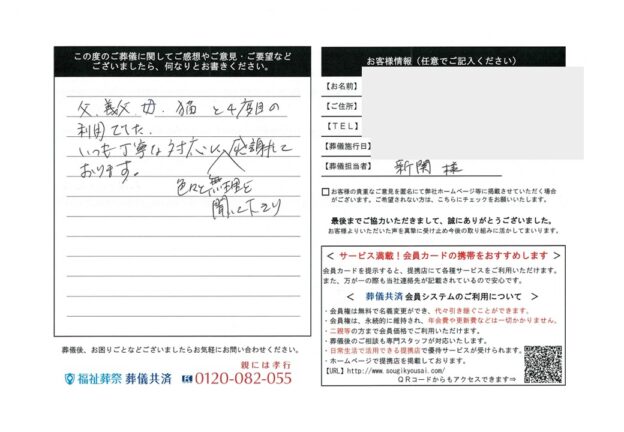 この度のご葬儀に関してご感想やご意見・ご要望など
ございましたら、何なりとお書きください。
父、義父、母、猫と4度目の
利用でした。
いつも丁寧な対応に感謝して
おります。
色々と無理を
聞いて下さり
葬儀後、お困りごとなどございましたらお気軽にお問い合わせください。
親には孝行
福祉葬祭 葬儀共済 0120-082-055
お客様情報（任意でご記入ください）
【お名前】
【ご住所】
【TEL】
【葬儀施行日】
【葬儀担当者】 新関 様
お客様の貴重なご意見を匿名にて弊社ホームページ等に掲載させていただく場合
がございます。ご希望されない方は、こちらにチェックをお願いいたします。
最後までご協力いただきまして、誠にありがとうございました。
お客様よりいただいた声を真摯に受け止め今後の取り組みに活かしてまいります。
＜ サービス満載！会員カードの携帯をおすすめします ＞
会員カードを提示すると、提携店にて各種サービスをご利用いただけます。
また、万が一の際も当社連絡先が記載されているので安心です。
＜ 葬儀共済 会員システムのご利用について ＞
・会員権は無料で名義変更ができ、代々引き継ぐことができます。
・会員権は、永続的に維持され、年会費や更新費などは一切かかりません。
・二親等の方まで会員価格でご利用いただけます。
・葬儀後のご相談も専門スタッフが対応いたします。
・日常生活で活用できる提携店で優待サービスが受けられます。
・ホームページで提携店を掲載しております。
【URL】http://www.sougikyousai.com/
QRコードからもアクセスできます⇒